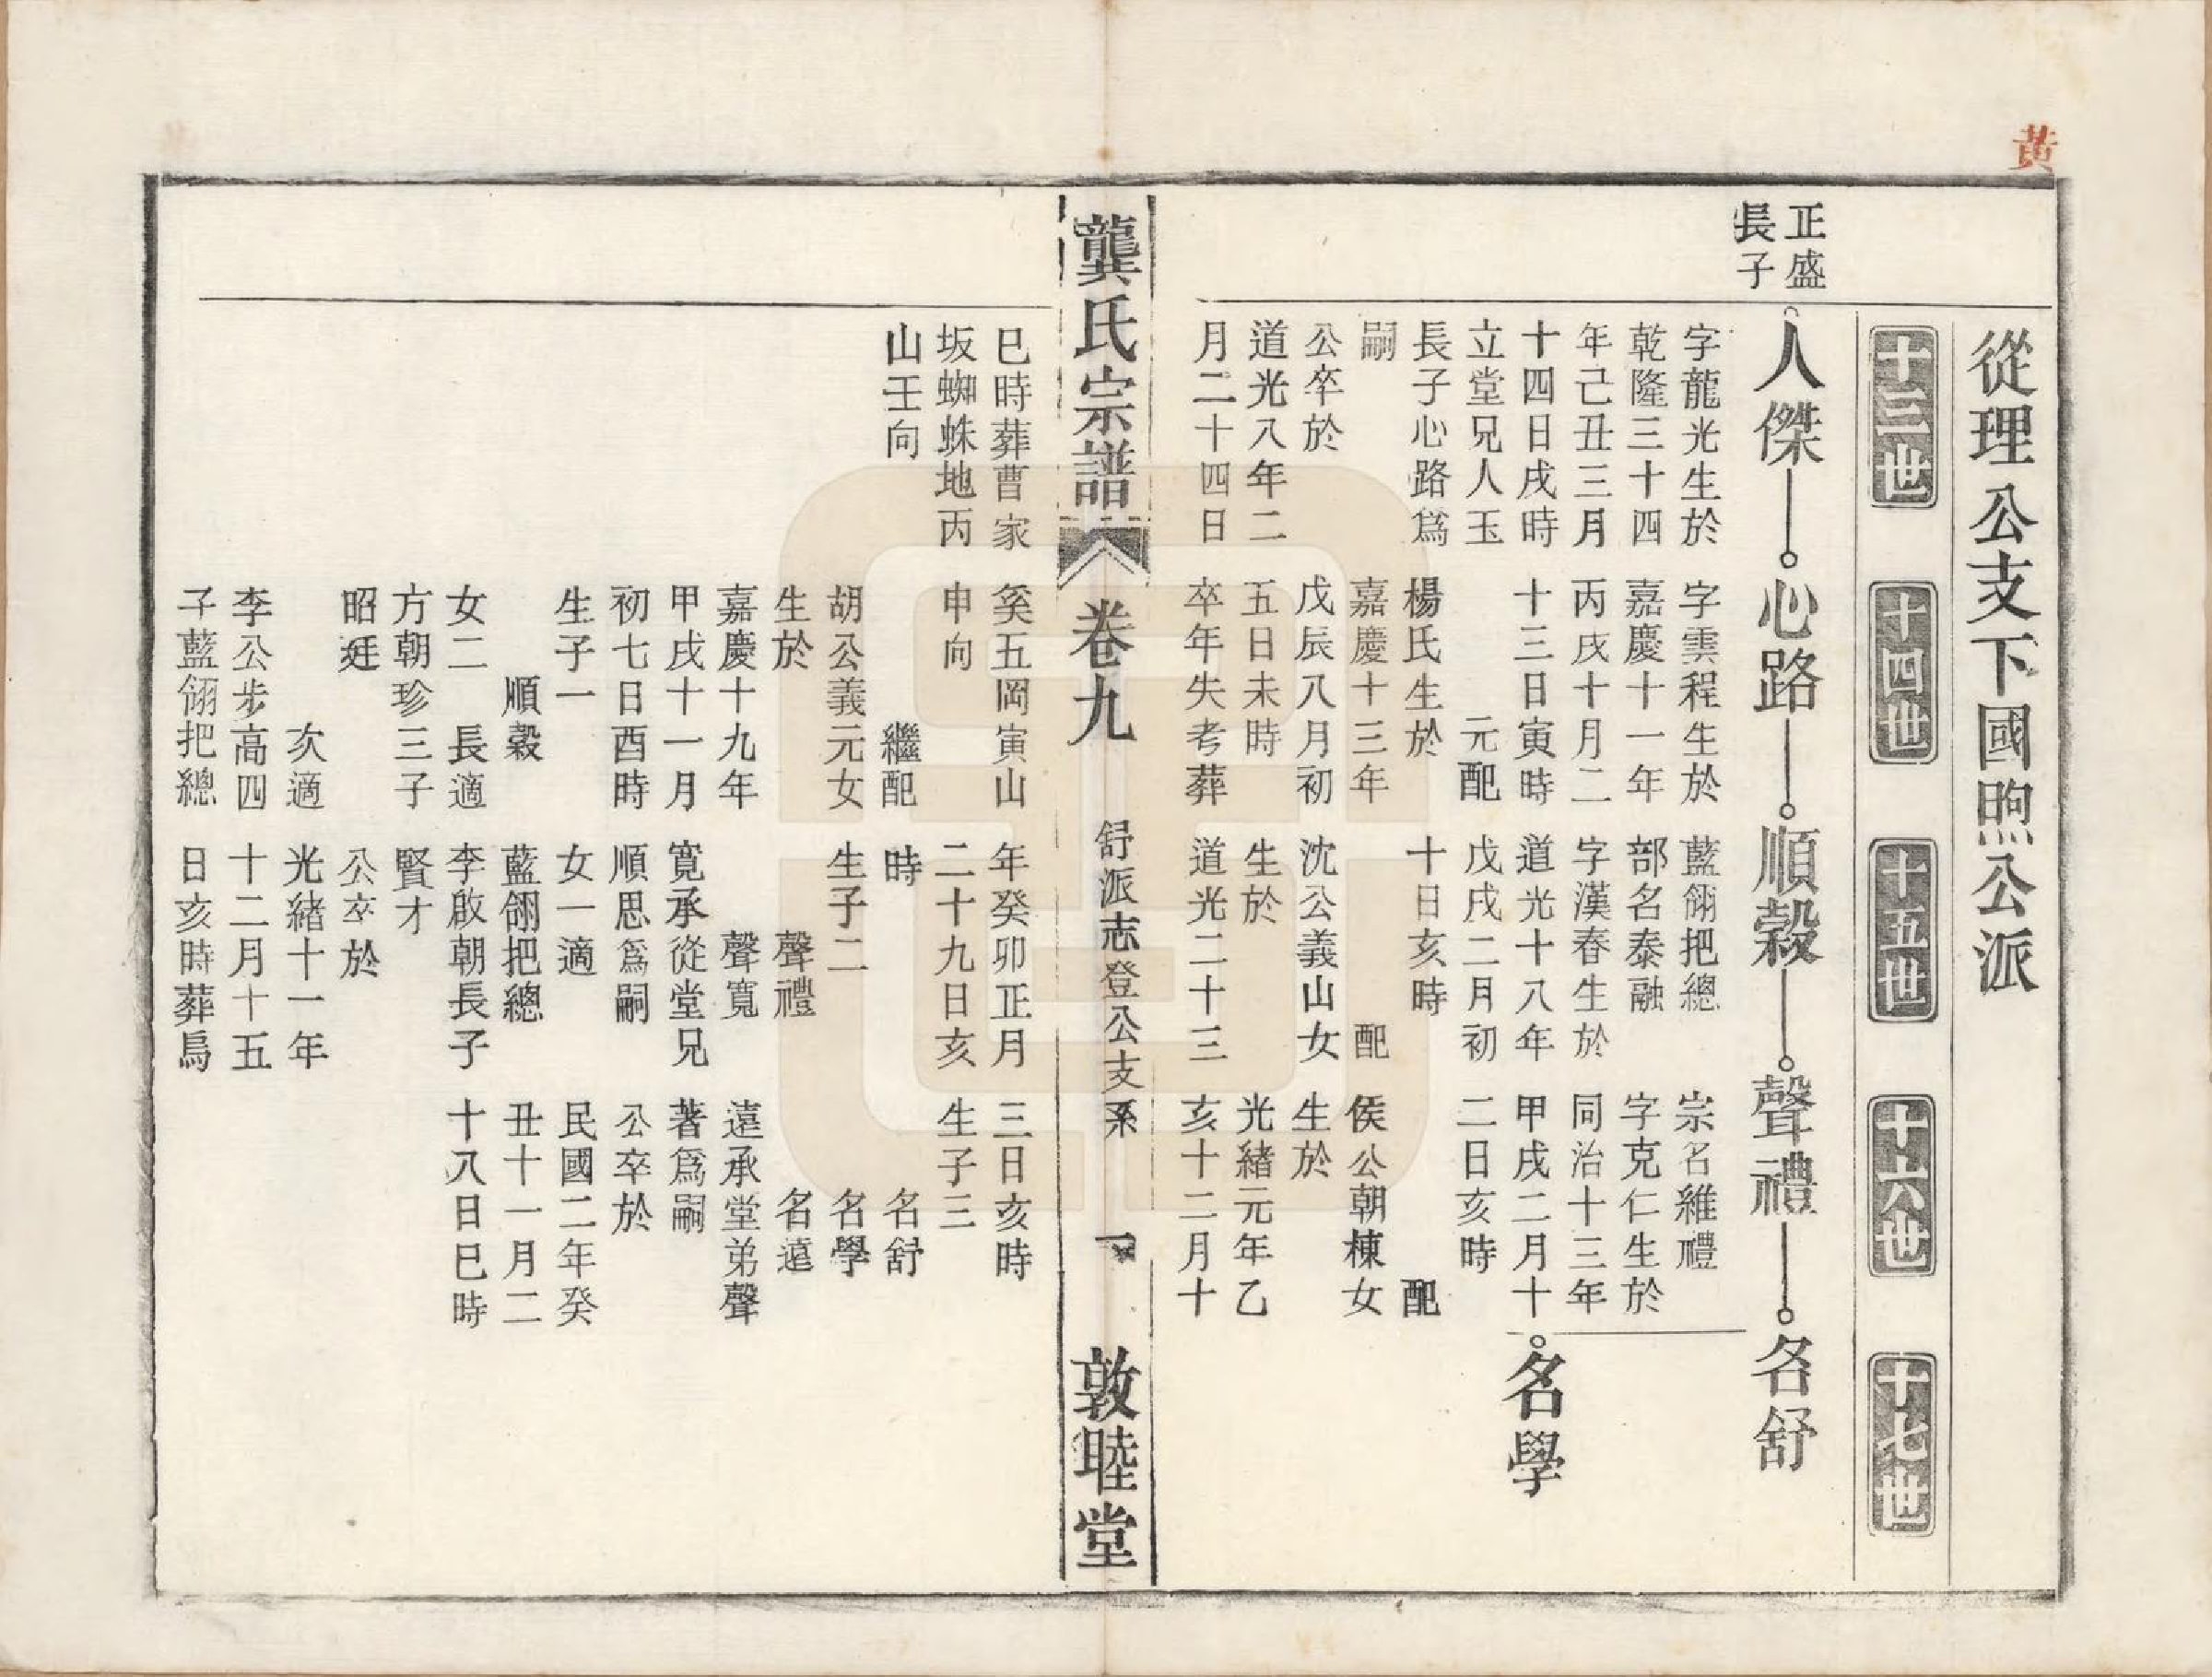 黄
從理公支下國煦公派
十三世
十四世
十五世
十六世
十七世
正盛
長子
人傑
心路
順穀
聲禮
名舒
名學
字龍光生於
乾隆三十四
年己丑三月
十四日戌時
立堂兄人玉
長子心路爲
嗣
公卒於
道光八年二
月二十四日
巳時葬曹家
坂蜘蛛地丙
山壬向
字雲程生於
嘉慶十一年
丙戌十月二
十三日寅時
元配
楊氏生於
嘉慶十三年
戊辰八月初
五日未時
卒年失考葬
奚五岡寅山
申向
繼配
胡公義元女
生於
嘉慶十九年
甲戌十一月
初七日酉時
生子一
順穀
女二　長適
方朝珍三子
昭廷
次適
李公步高四
子藍翎把總
藍翎把總
部名泰融
字漢春生於
道光十八年
戊戌二月初
十日亥時
配
沈公義山女
生於
道光二十三
年癸卯正月
二十九日亥
時
生子二
聲禮
聲寬
寬承從堂兄
順思爲嗣
女一適
藍翎把總
李啟朝長子
賢才
公卒於
光緒十一年
十二月十五
日亥時葬烏
宗名維禮
字克仁生於
同治十三年
甲戌二月十
二日亥時
配
侯公朝棟女
生於
光緒元年乙
亥十二月十
三日亥時
生子三
名舒
名學
名遠
遠承堂弟聲
著爲嗣
公卒於
民國二年癸
丑十一月二
十八日巳時
龔氏宗譜
卷九
舒派志登公支系
一
敦睦堂